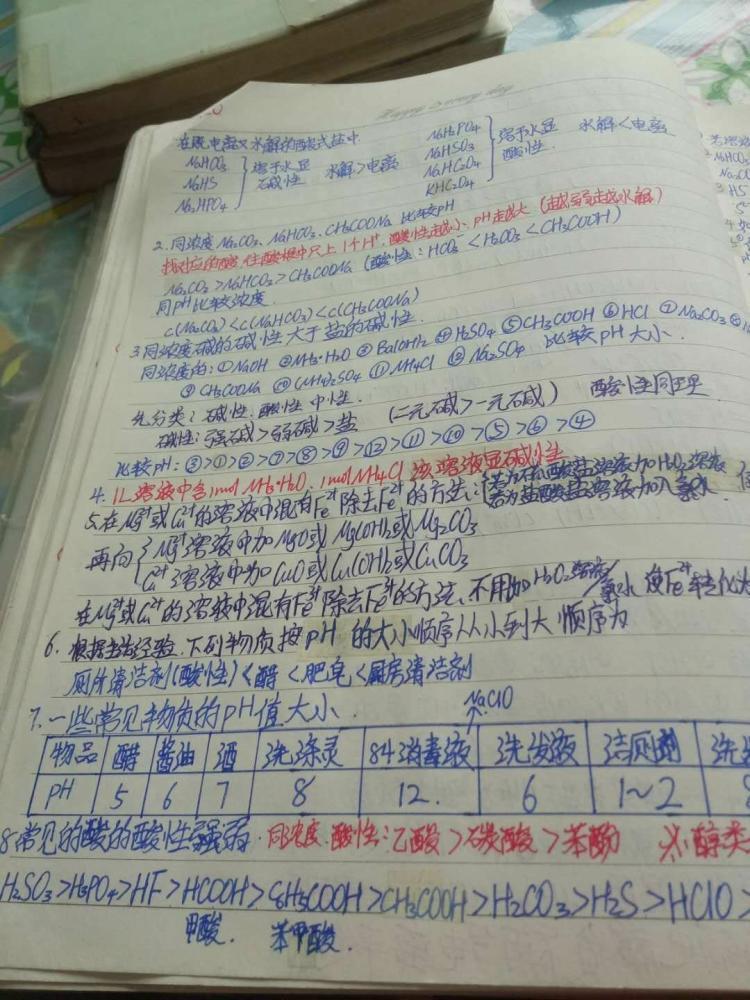 Happy every day
在既电离又水解的酸式盐中.
NaHCO₃ NaHS Na₂HPO₄ } 溶于水显碱性 水解>电离
NaH₂PO₄ NaHSO₃ NaHC₂O₄ KHC₂O₄ } 溶于水显酸性. 水解<电离
2. 同浓度 Na₂CO₃、NaHCO₃、CH₃COONa 比较pH
找对应的酸,往酸根中只上1个H⁺, 酸性越小, pH越大 (越弱越水解)
Na₂CO₃>NaHCO₃>CH₃COONa (酸性: HCO₃⁻<H₂CO₃<CH₃COOH)
同pH比较浓度.
c(Na₂CO₃)<c(NaHCO₃)<c(CH₃COONa)
3 同浓度碱的碱性大于盐的碱性.
同浓度的: ①NaOH ②NH₃·H₂O ③Ba(OH)₂ ④H₂SO₄ ⑤CH₃COOH ⑥HCl ⑦Na₂CO₃ ⑧
⑨CH₃COONa ⑩(NH₄)₂SO₄ ⑪NH₄Cl ⑫Na₂SO₄ 比较pH大小.
先分类: 碱性. 酸性 中性.
碱性: 强碱>弱碱>盐 (二元碱>一元碱) 酸性同理
比较pH: ③>①>②>⑦>⑧>⑨>⑫>⑪>⑩>⑤>⑥>④
4. 1L溶液中含1mol NH₃·H₂O、1mol NH₄Cl 该溶液显碱性
5. 在Mg²⁺或Cu²⁺的溶液中混有Fe²⁺除去Fe²⁺的方法: { 酸盐溶液加H₂O₂溶液 若为盐酸盐溶液加入氯水.
再向 { Mg²⁺溶液中加MgO或Mg(OH)₂或Mg₂CO₃
Cu²⁺溶液中加CuO或Cu(OH)₂或CuCO₃
在Mg²⁺或Cu²⁺的溶液中混有Fe³⁺除去Fe³⁺的方法、不用加H₂O₂溶液/氯水 使Fe²⁺转化
6. 根据生活经验、下列物质按pH的大小顺序从小到大顺序为
厕所清洁剂(酸性)<醋<肥皂<厨房清洁剂
7. 一些常见物质的pH值大小.
NaClO
物品 醋 酱油 酒 洗涤灵 84消毒液 洗发液 洁厕剂 洗
PH 5 6 7 8 12. 6 1~2
8常见的酸的酸性强弱. 同浓度. 酸性: 乙酸>碳酸>苯酚 醇类
H₂SO₃>H₃PO₄>HF>HCOOH>C₆H₅COOH>CH₃COOH>H₂CO₃>H₂S>HClO>
甲酸. 苯甲酸.